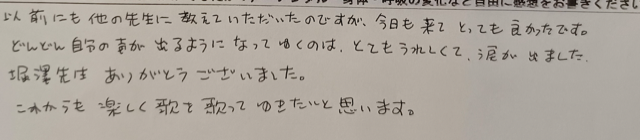 以前にも他の先生に教えていただいたのですが、今日も来てとっても良かったです。
どんどん自分の声が出るようになってゆくのは、とてもうれしくて、涙が出ました。
堀澤先生ありがとうございました。
これからも楽しく歌を歌ってゆきたいと思います。